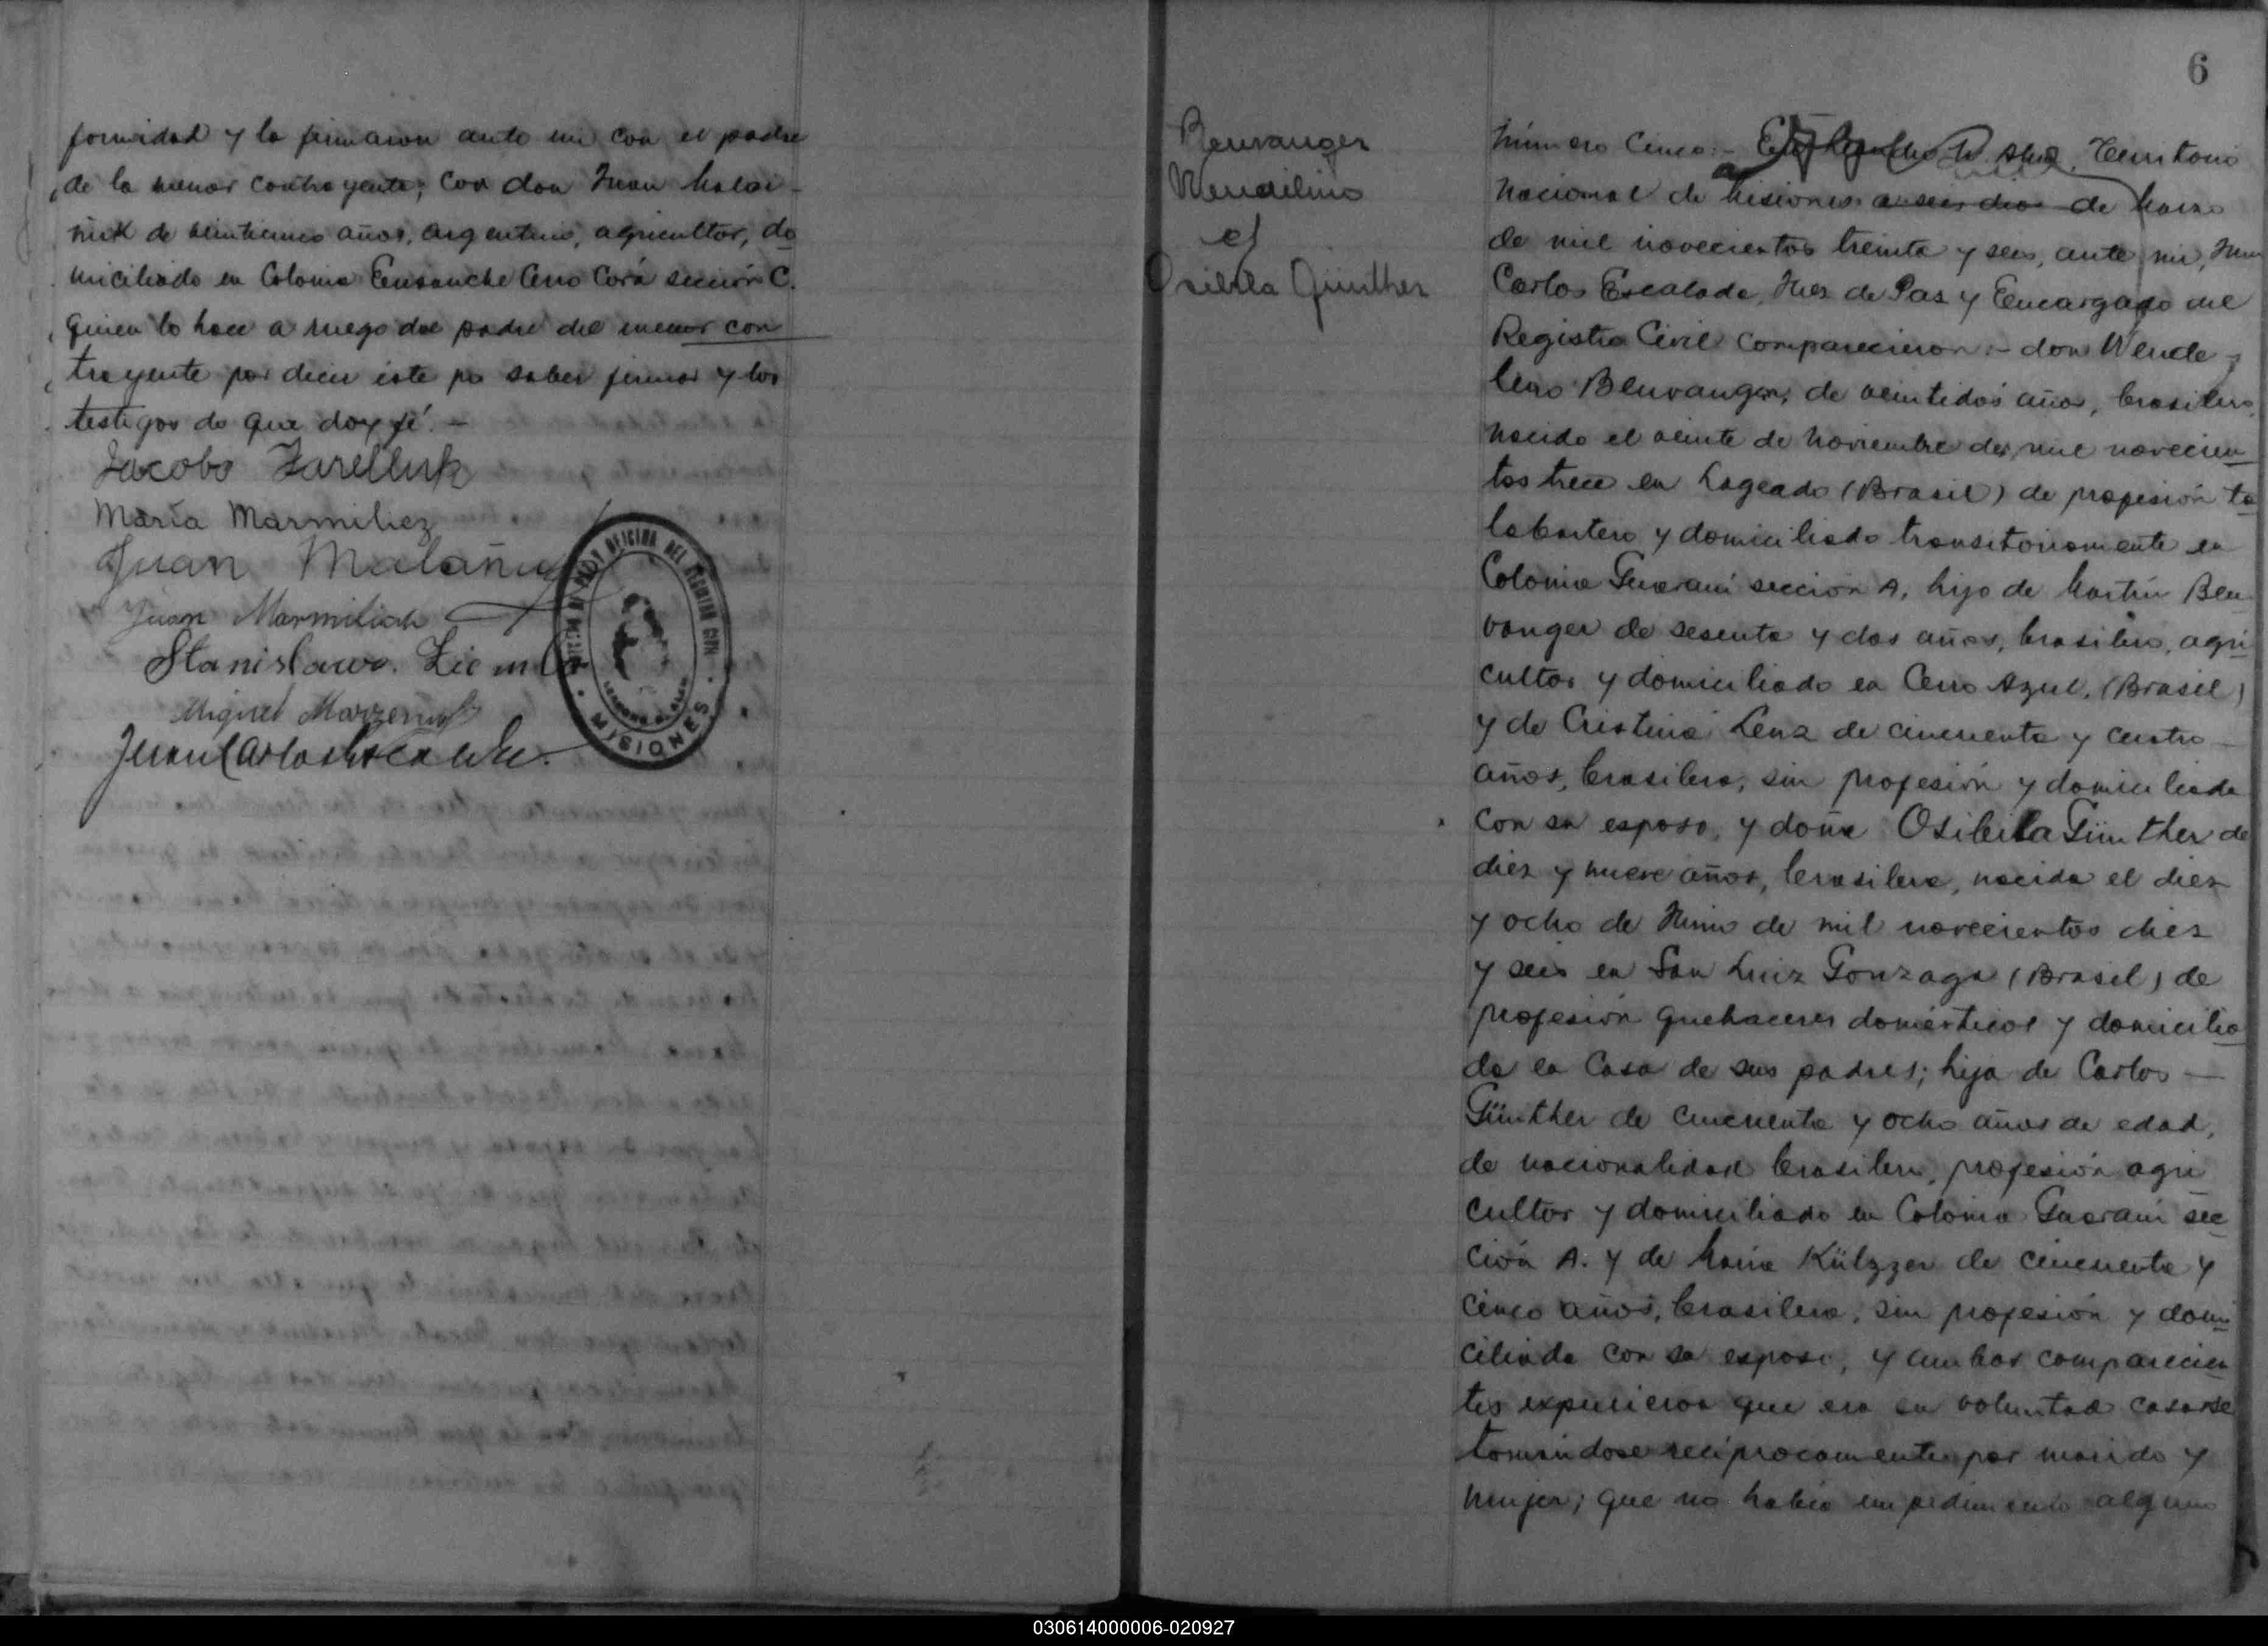 formidad y la firmaron ante mi con el padre
de la menor contrayente; con don Juan Malañ-
niuk de veinticinco años, argentino, agricultor, do
miciliado en Colonia Ensanche Cerro Corá sección C.
quien lo hace a ruego del padre del menor con
trayente por decir éste no saber firmar y los
testigos de que doy fé. -
Jacobo Zarelluk
María Marmilicz
Juan Malañu
Juan Marmilich
Stanislawo. Ziemla
Miguel
Juan Carlos Escalada.
OFICINA DEL REGISTRO CIVIL
MISIONES
6
Beuvanger
Wendilino
y
Osibila Günther
Número Cinco:- En Territorio
Nacional de Misiones a seis dias de Marzo
de mil novecientos treinta y seis, ante mi, Juan
Carlos Escalada, Juez de Paz y Encargado del
Registro Civil comparecieron:- don Wende-
lino Beuvanger, de veintidós años, brasilero,
nacido el veinte de Noviembre de mil novecien
tos trece en Lageado (Brasil) de profesión ta
labartero y domiciliado transitoriamente en
Colonia Guaraní sección A, hijo de Martín Beu
vanger de sesenta y dos años, brasilero, agri
cultor y domiciliado en Cerro Azul, (Brasil)
y de Cristina Lenz de cincuenta y cuatro
años, brasilera, sin profesión y domiciliada
con su esposo, y doña Osibila Günther de
diez y nueve años, brasilera, nacida el diez
y ocho de Junio de mil novecientos diez
y seis en San Luiz Gonzaga (Brasil) de
profesión quehaceres domésticos y domicilia
da en Casa de sus padres; hija de Carlos —
Günther de cincuenta y ocho años de edad,
de nacionalidad brasilero, profesión agri
cultor y domiciliado en Colonia Guaraní sec
ción A. y de María Külzzer de cincuenta y
cinco años, brasilera, sin profesión y domi
ciliada con su esposo, y ambos comparecien
tes expusieron que era su voluntad casarse
tomándose recíprocamente por marido y
mujer; que no había impedimento alguno
030614000006-020927